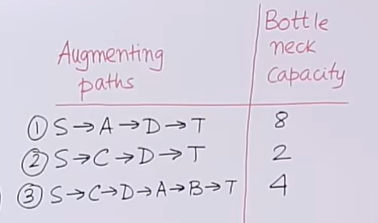 Augmenting paths
Bottle neck capacity
① S→A→D→T 8
② S→C→D→T 2
③ S→C→D→A→B→T 4